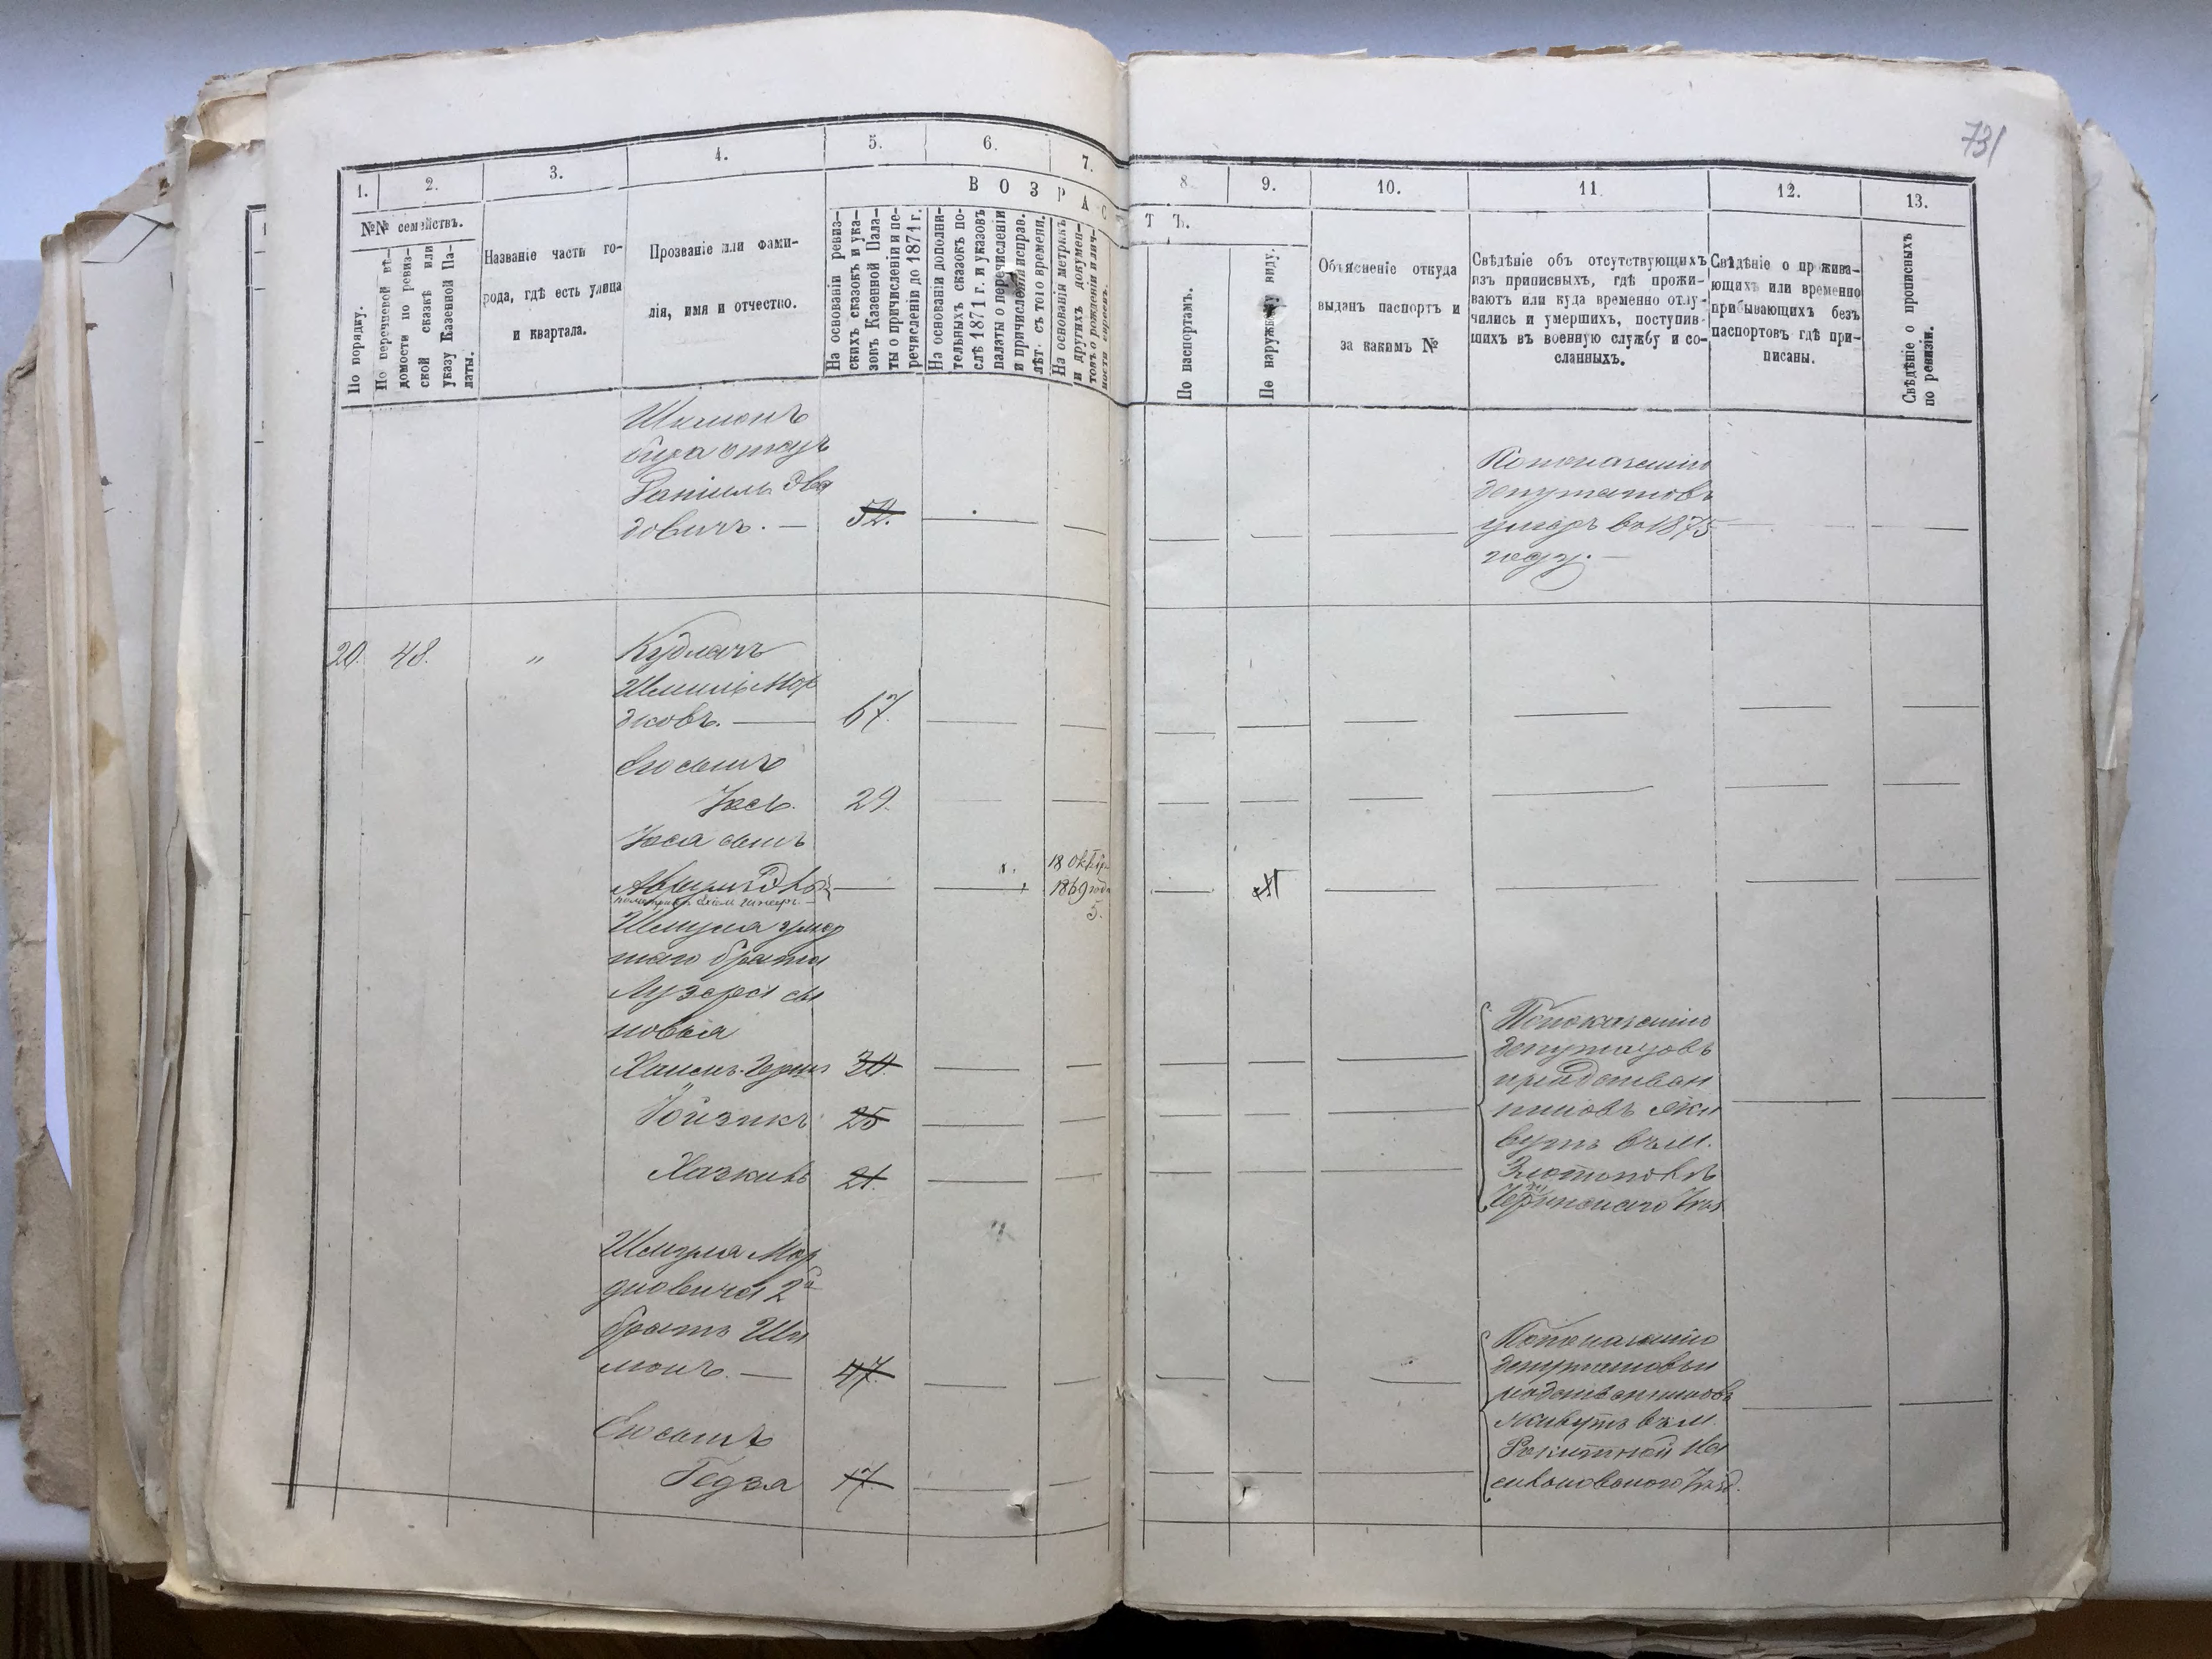 731
1.
2.
3.
4.
5.
6.
7.
8.
9.
10.
11.
12.
13.
№№ семействъ.
По порядку.
По перечневой вѣ-
домости по ревиз-
ской сказкѣ или
указу Казенной Па-
латы.
Названіе части го-
рода, гдѣ есть улица
и квартала.
Прозваніе или фами-
лія, имя и отчество.
ВОЗРАС
Т Ъ.
На основаніи ревиз-
скихъ сказокъ и ука-
зокъ Казенной Пала-
ты о причисленіи и пе-
речисленіи до 1871 г.
На основаніи дополни-
тельныхъ сказокъ по-
слѣ 1871 г. и указовъ
палаты о перечисленіи
и причисленіи исправ.
лѣт. съ того времени.
На основаніи метрикъ
и другихъ докумен-
товъ о рожденіи и лич-
ности евреевъ.
По паспортамъ.
По наружному виду.
Объясненіе откуда
выданъ паспортъ и
за какимъ №
Свѣдѣніе объ отсутствующихъ
изъ приписныхъ, гдѣ прожи-
ваютъ или куда временно отлу-
чились и умершихъ, поступив-
шихъ въ военную службу и со-
сланныхъ.
Свѣдѣніе о прожива-
ющихъ или временно
прибывающихъ безъ
паспортовъ гдѣ при-
писаны.
Свѣдѣніе о прописныхъ
по ревизіи.
Шимонъ
Даніилъ Дав
довичъ. — 52.
По показанію
депутатовъ
умеръ въ 1875
году. —
20. 48. „ Кудлачъ
Шмиль Мор
дковъ. — 67.
Его сынъ
Іось. 29.
Іося сынъ
18 Октяб.
1869 года
5.
Шмуля умер
шаго брата
Лузера сы
новья
Хаимъ-Герш 34.
Іойзикъ 25
Хаскивъ 21.
По показанію
депутатовъ
и родствен
никовъ жи
вутъ въ м.
Златополѣ
Чигринскаго Уѣз
Шмуля Мор
дковича 2й
братъ Ши
монъ. — 47.
Его сынъ
Гедзя 17.
По показанію
депутатовъ и
родственниковъ
живутъ въ м.
Ракитной Ва
сильковского Уѣзд.